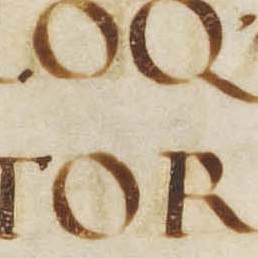 LOQ
TOR